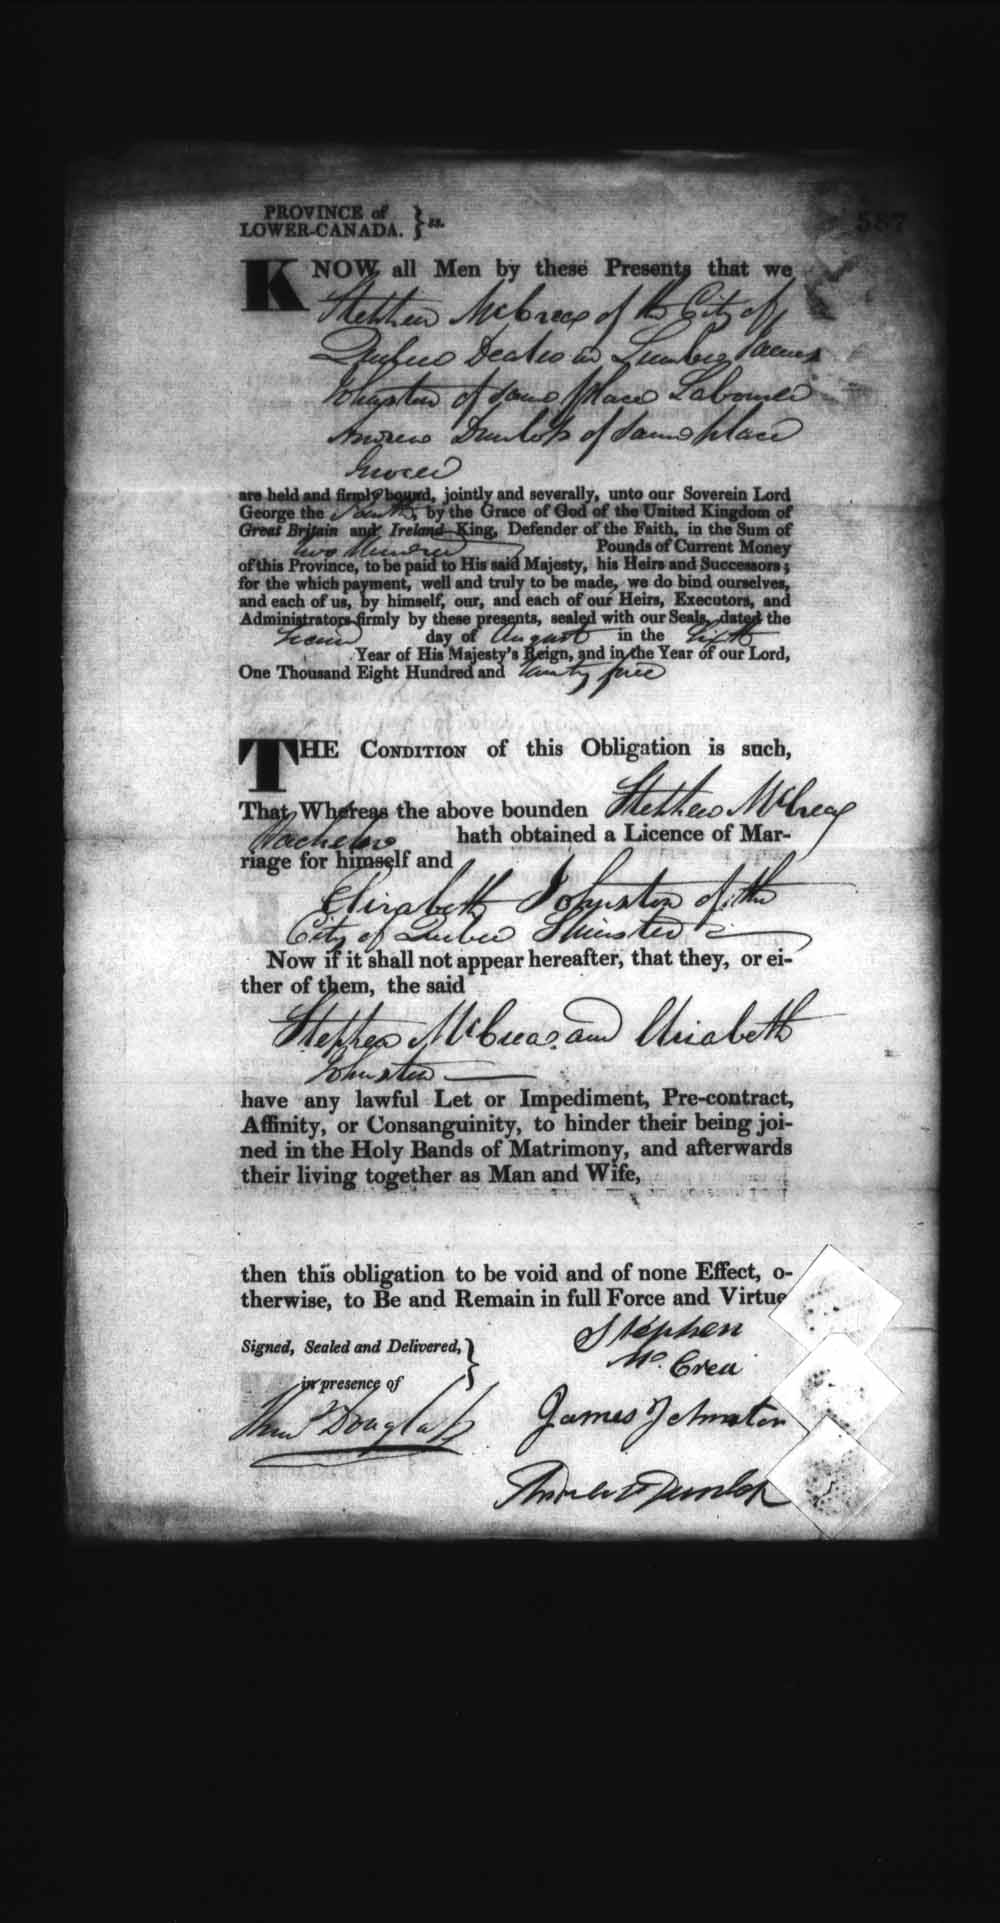 587
PROVINCE of
LOWER-CANADA. } ss.
KNOW all Men by these Presents that we
Stephen McCrea of the City of
Quebec Dealer in Lumber James
Johnston of same place Labourer
Andrew Dunlop of same place
Grocer
are held and firmly bound, jointly and severally, unto our Soverein Lord
George the Fourth, by the Grace of God of the United Kingdom of
Great Britain and Ireland King, Defender of the Faith, in the Sum of
two Hundred Pounds of Current Money
of this Province, to be paid to His said Majesty, his Heirs and Successors;
for the which payment, well and truly to be made, we do bind ourselves,
and each of us, by himself, our, and each of our Heirs, Executors, and
Administrators firmly by these presents, sealed with our Seals, dated the
Second day of August in the Sixth
Year of His Majesty's Reign, and in the Year of our Lord,
One Thousand Eight Hundred and twenty five
THE CONDITION of this Obligation is such,
That Whereas the above bounden Stephen McCrea
Bachelor hath obtained a Licence of Mar-
riage for himself and
Elizabeth Johnston of the
City of Quebec Spinster
Now if it shall not appear hereafter, that they, or ei-
ther of them, the said
Stephen McCrea and Elizabeth
Johnston
have any lawful Let or Impediment, Pre-contract,
Affinity, or Consanguinity, to hinder their being joi-
ned in the Holy Bands of Matrimony, and afterwards
their living together as Man and Wife,
then this obligation to be void and of none Effect, o-
therwise, to Be and Remain in full Force and Virtue
Signed, Sealed and Delivered, }
in presence of
Stephen
Mc Crea
Douglass
James Johnston
Andrew Dunlop